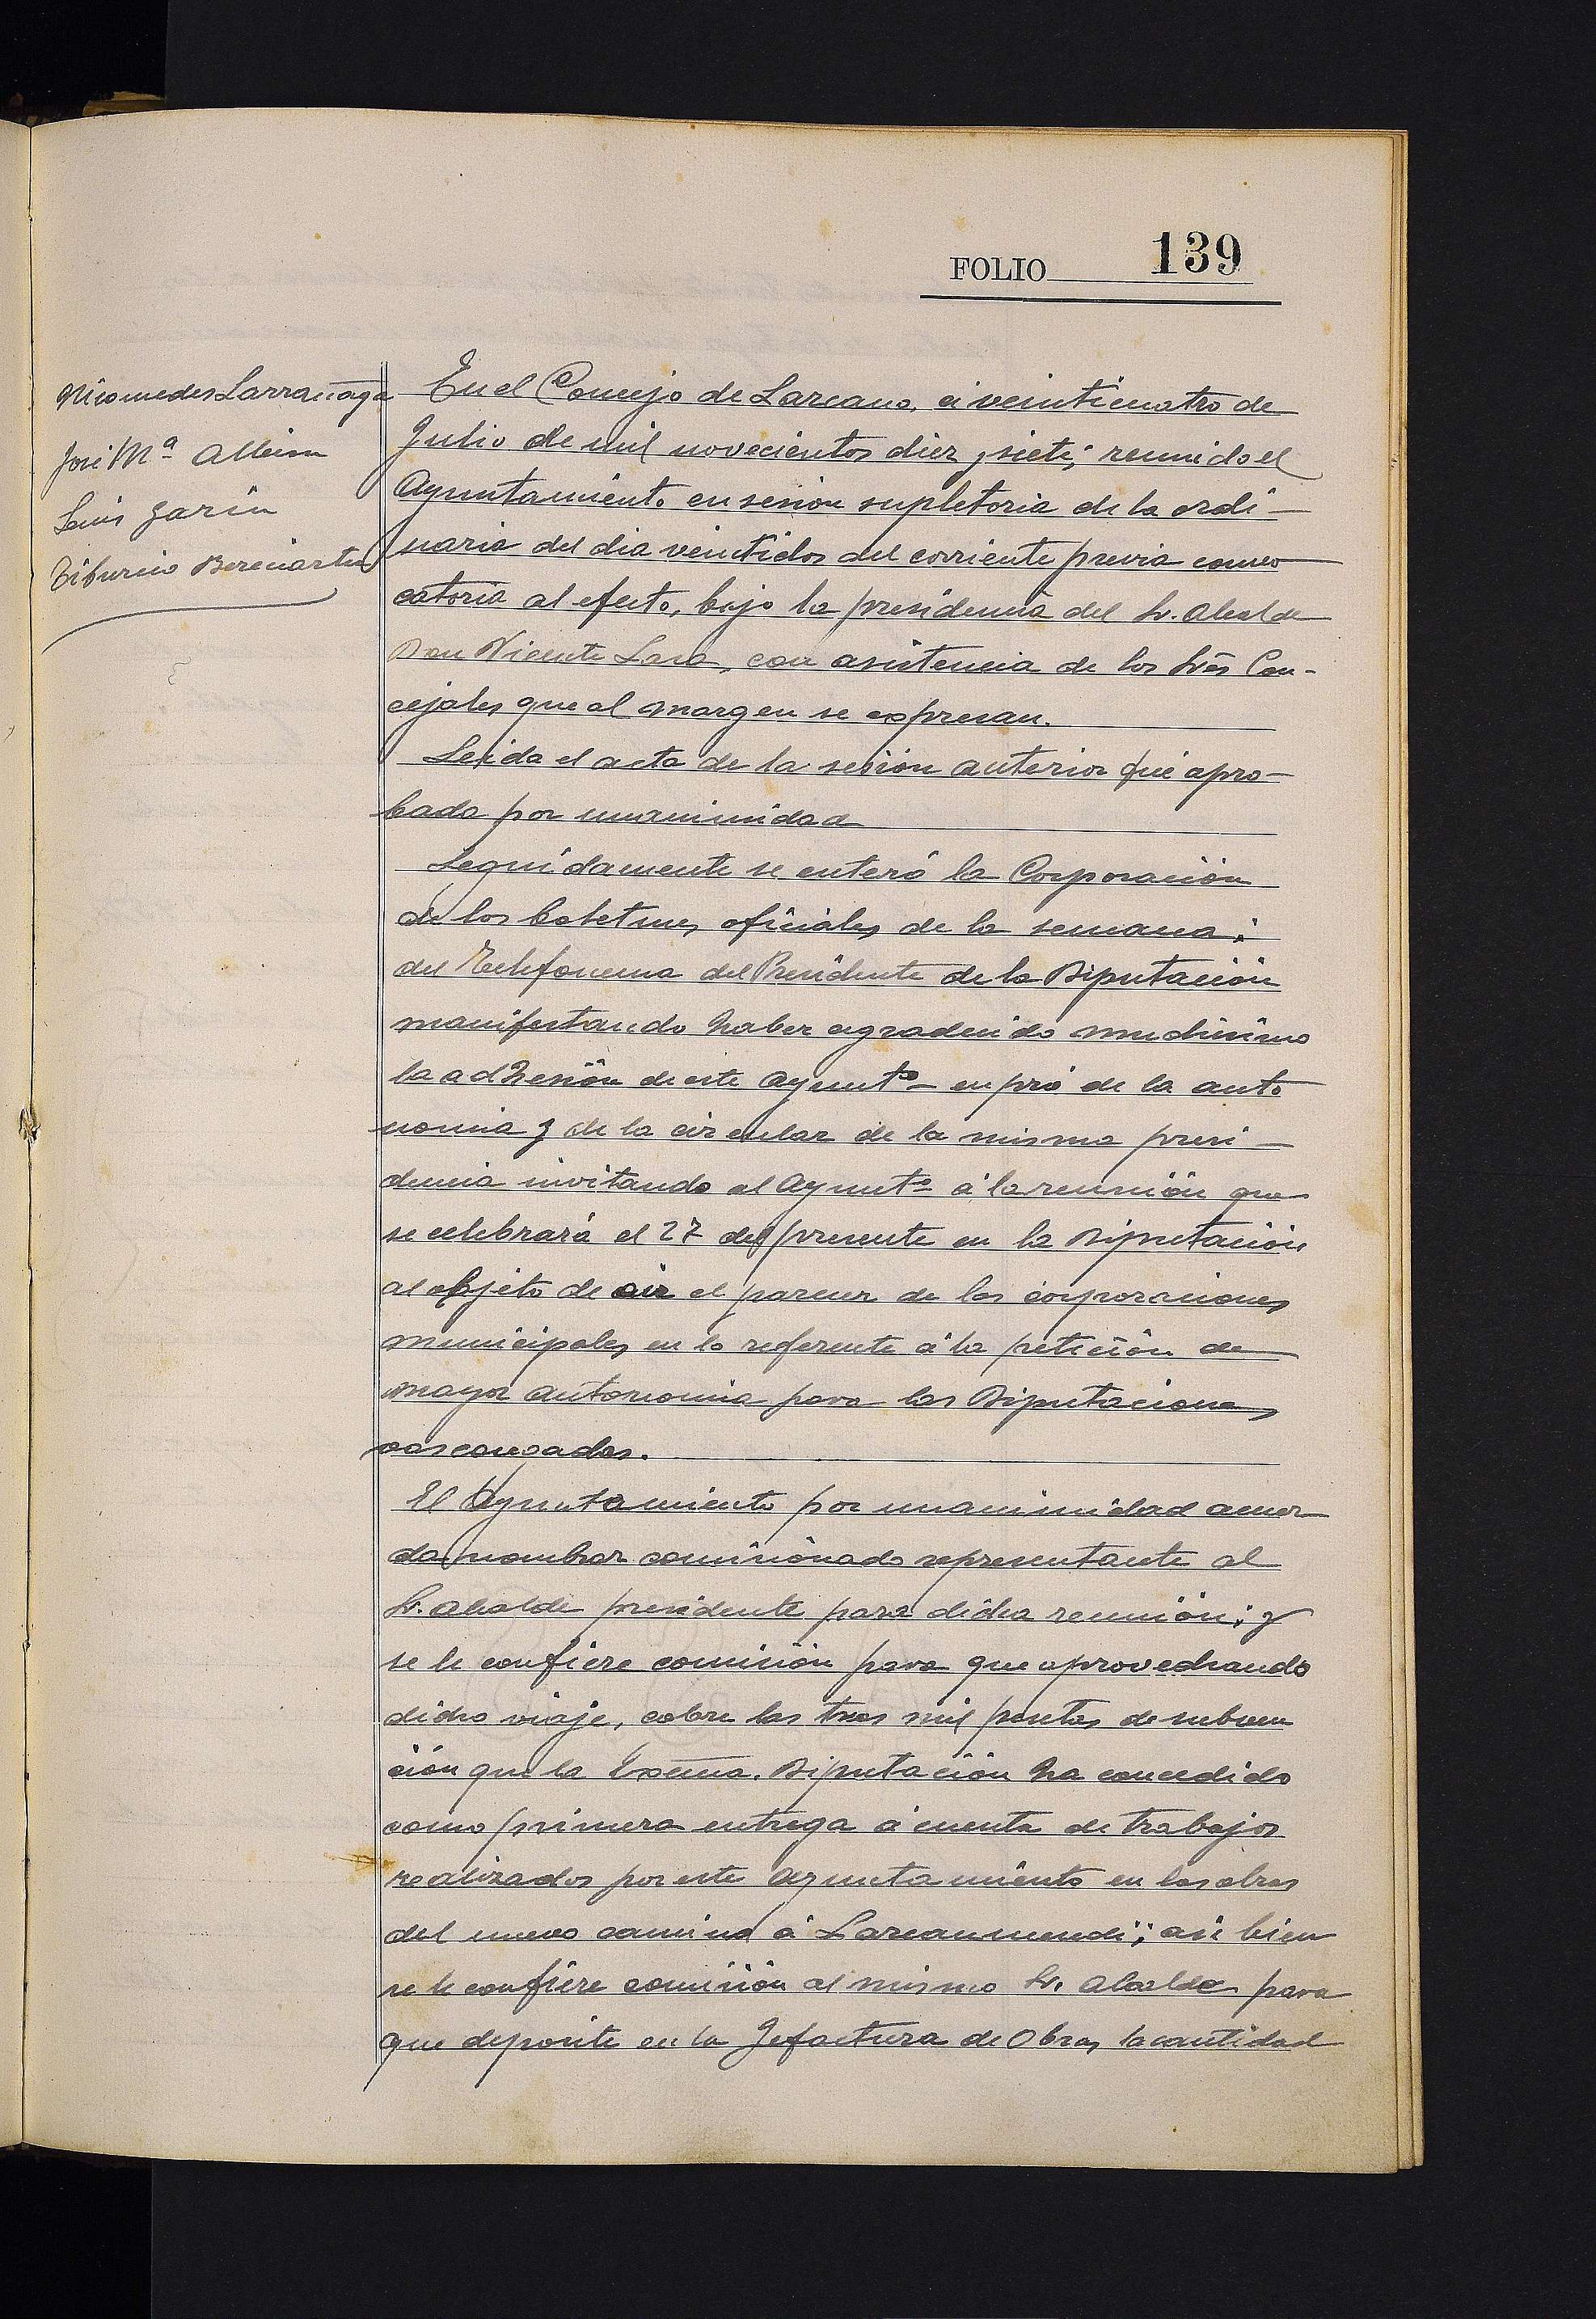 FOLIO 139
Nicomedes Larrañaga
José Mª Alleion
Luis Garin
Tiburcio Bereciartua
En el Concejo de Lazcano, á veinticuatro de
Julio de mil novecientos diez y siete; reunido el
Ayuntamiento en sesión supletoria de la ordi-
naria del dia veintidos del corriente previa convo
catoria al efecto, bajo la presidencia del Sr. Alcalde
Don Vicente Lasa, con asistencia de los Srēs Con-
cejales que al margen se expresan.
Leida el acta de la sesión anterior fué apro-
bada por unanimidad
Seguidamente se enteró la Corporación
de los boletines oficiales de la semana;
del Telefonema del Presidente de la Diputación
manifestando haber agradecido muchisimo
la adhesión de este Ayuntº en pró de la auto
nomia y de la circular de la misma presi-
dencia invitando al Ayuntº á la reunión que
se celebrará el 27 del presente en la Diputación
al objeto de oir el parecer de las corporaciones
municipales en lo referente á la petición de
mayor autonomia para las Diputaciones
vascongadas.
El Ayuntamiento por unanimidad acuer
da nombrar comisionado representante al
Sr. Alcalde presidente para dicha reunión; y
se le confiere comisión para que aprovechando
dicho viaje, cobre las tres mil pesetas de subven
ción que la Excma. Diputación ha concedido
como primera entrega á cuenta de trabajos
realizados por este Ayuntamiento en las obras
del nuevo camino á Lazcanomendi; asi bien
se le confiere comisión al mismo Sr. Alcalde para
que deposite en la Jefactura de Obras la cantidad